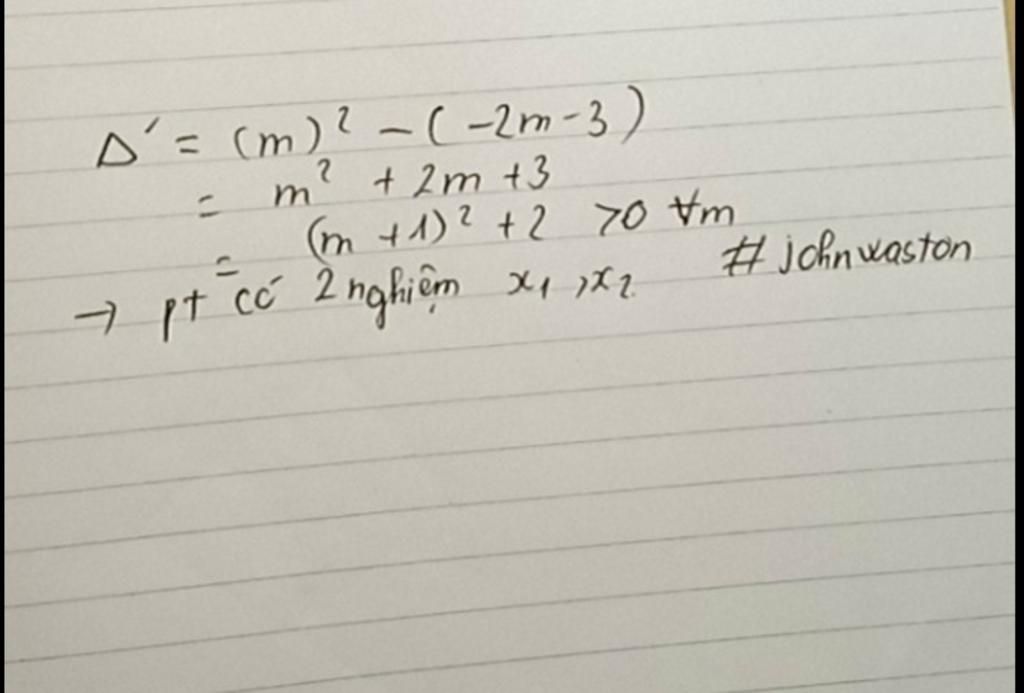 Δ' = (m)² - (-2m-3)
= m² + 2m +3
= (m +1)² +2 >0 ∀m
→ pt có 2 nghiệm x₁ ,x₂ # johnwaston